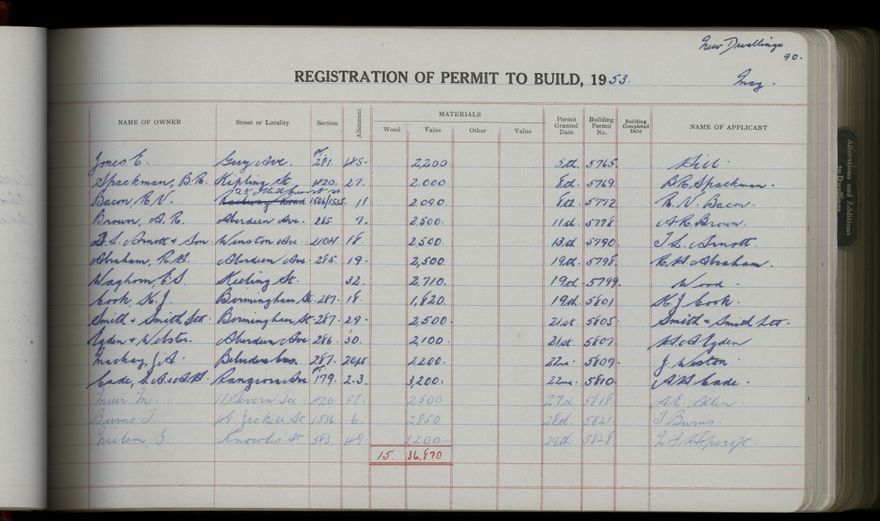 New Dwellings
90.
REGISTRATION OF PERMIT TO BUILD, 1953.
May.
NAME OF OWNER Street or Locality Section Allotment MATERIALS Wood Value Other Value Permit Granted Date Building Permit No. Building Completed Date NAME OF APPLICANT
Jones E. Guy Ave. Pt 291. 2,200. 5th. 5765. Hill.
Spackman, B.R. Kipling St. 1420. 27. 2.000 8th. 5769. B.R. Spackman.
Bacon, R.V. Railway Road 1506/1535. 11 2090. 8th. 5772 R.V. Bacon.
Brown, A.R. Aberdeen Ave. 285 7. 2,500. 11th. 5778 A.R. Brown.
Arnott & Son Winston Ave 18. 2,500 13th. 5790. Arnott.
Abraham, R.H. Aberdeen Ave. 285 19. 2,500 19th. 5798. R.H. Abraham.
Waghorn, E.S. Keeling St. 32. 2,710. 19th. 5799. Wood.
Cook, K.J. Bermingham St. 287. 18. 1,820. 19th. 5801 K.J. Cook.
Smith & Smith Ltd. Bermingham St. 287. 29. 2,500. 21st. 5805. Smith & Smith Ltd.
Ogden & Webster. Aberdeen Ave 286. 30. 2,100. 21st. 5807. Ogden
Mackay, J.A. Belvedere Cres. 287. 2200. 22nd. 5809. J. Weston
Cade, Rangiora Ave Pt 179. 2-3. 3,200. 22nd. 5810. A.H. Cade.
Muir M. 11 Severn 1420. 58. 2500 27th 5818 Allen.
Burns T. 1536. 6. 2850 28th. 5821. T Burns
G. Knowles St 383 49. 1200 29th 5828
15. 36,870
Alterations and Additions to Dwellings